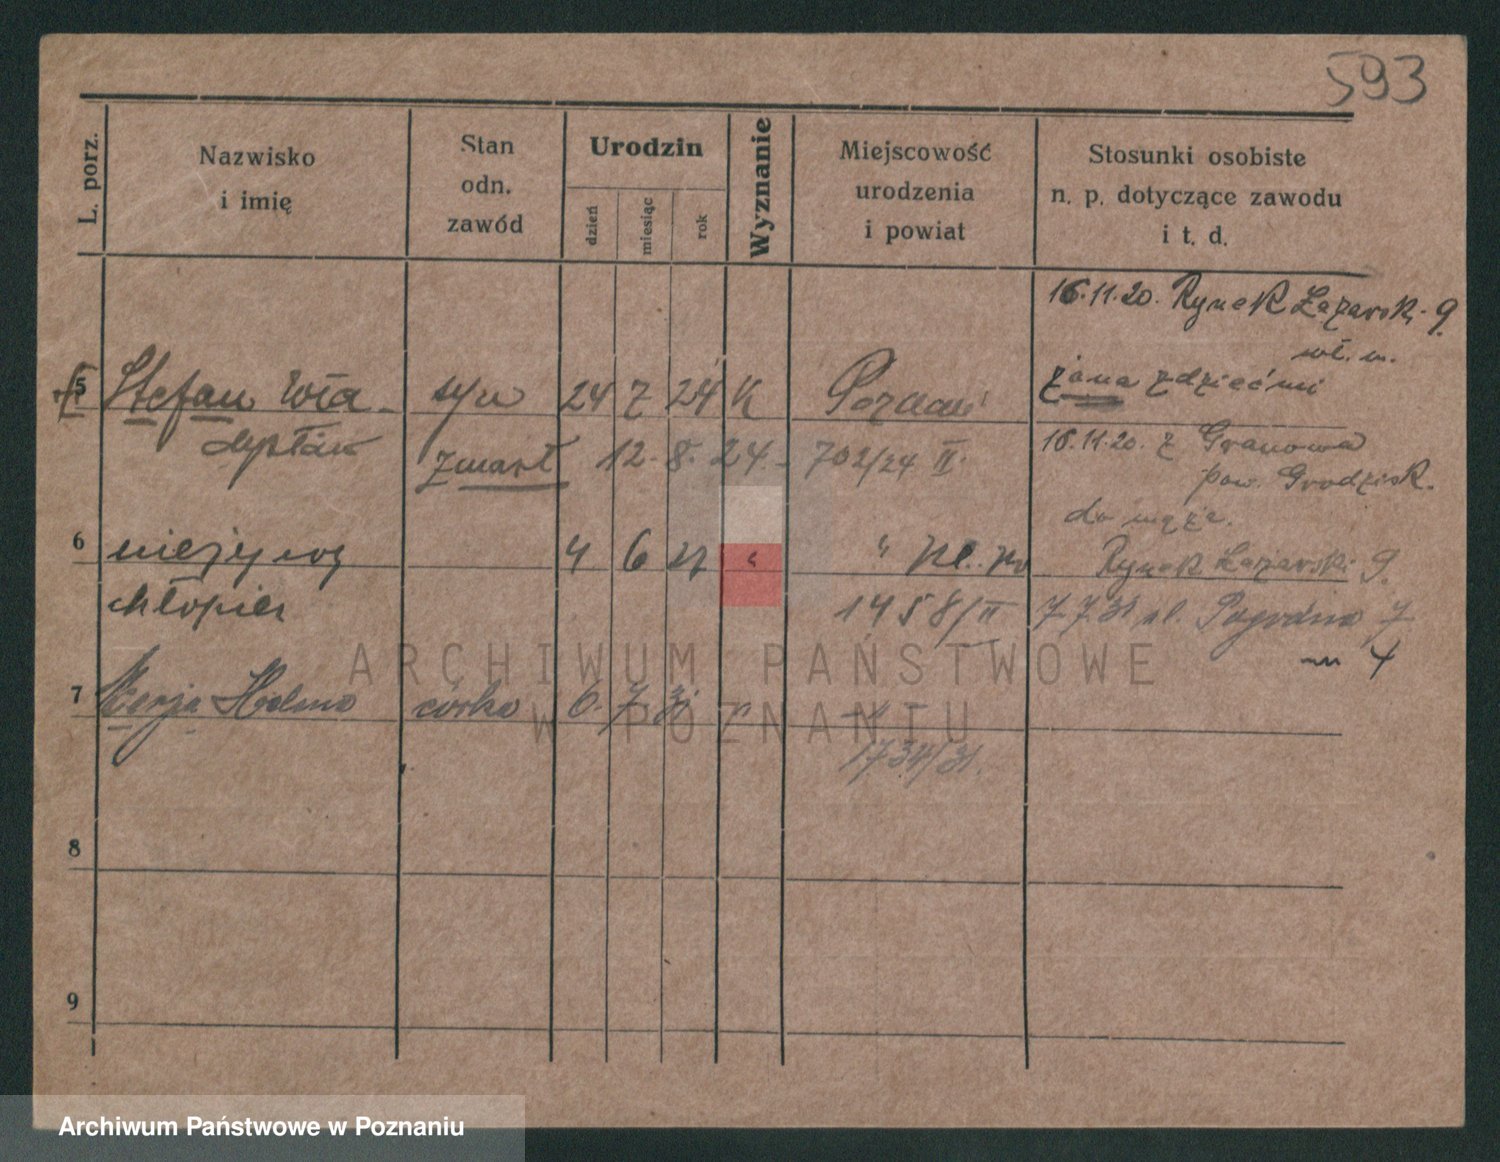 593
L. porz.
Nazwisko
i imię
Stan
odn.
zawód
Urodzin
dzień
miesiąc
rok
Wyznanie
Miejscowość
urodzenia
i powiat
Stosunki osobiste
n. p. dotyczące zawodu
i t. d.
16.11.20. Rynek Łazarski 9
wł. m.
5 Stefan Wła- syn 24 7 24 K Poznań
żona z dziećmi
dysław zmarł 12. 8. 24. 702/24 II.
16.11.20. z Granowa
pow. Grodzisk.
do męża.
6 nieżywy 4 6 27 " " 
Rynek Łazarski 9.
chłopiec 1458/II
7 7 31 ul. Pogodna 7
m 4
7 córka 6. 7 31 " "
1734/31.
8
9
ARCHIWUM PAŃSTWOWE
W POZNANIU
Archiwum Państwowe w Poznaniu